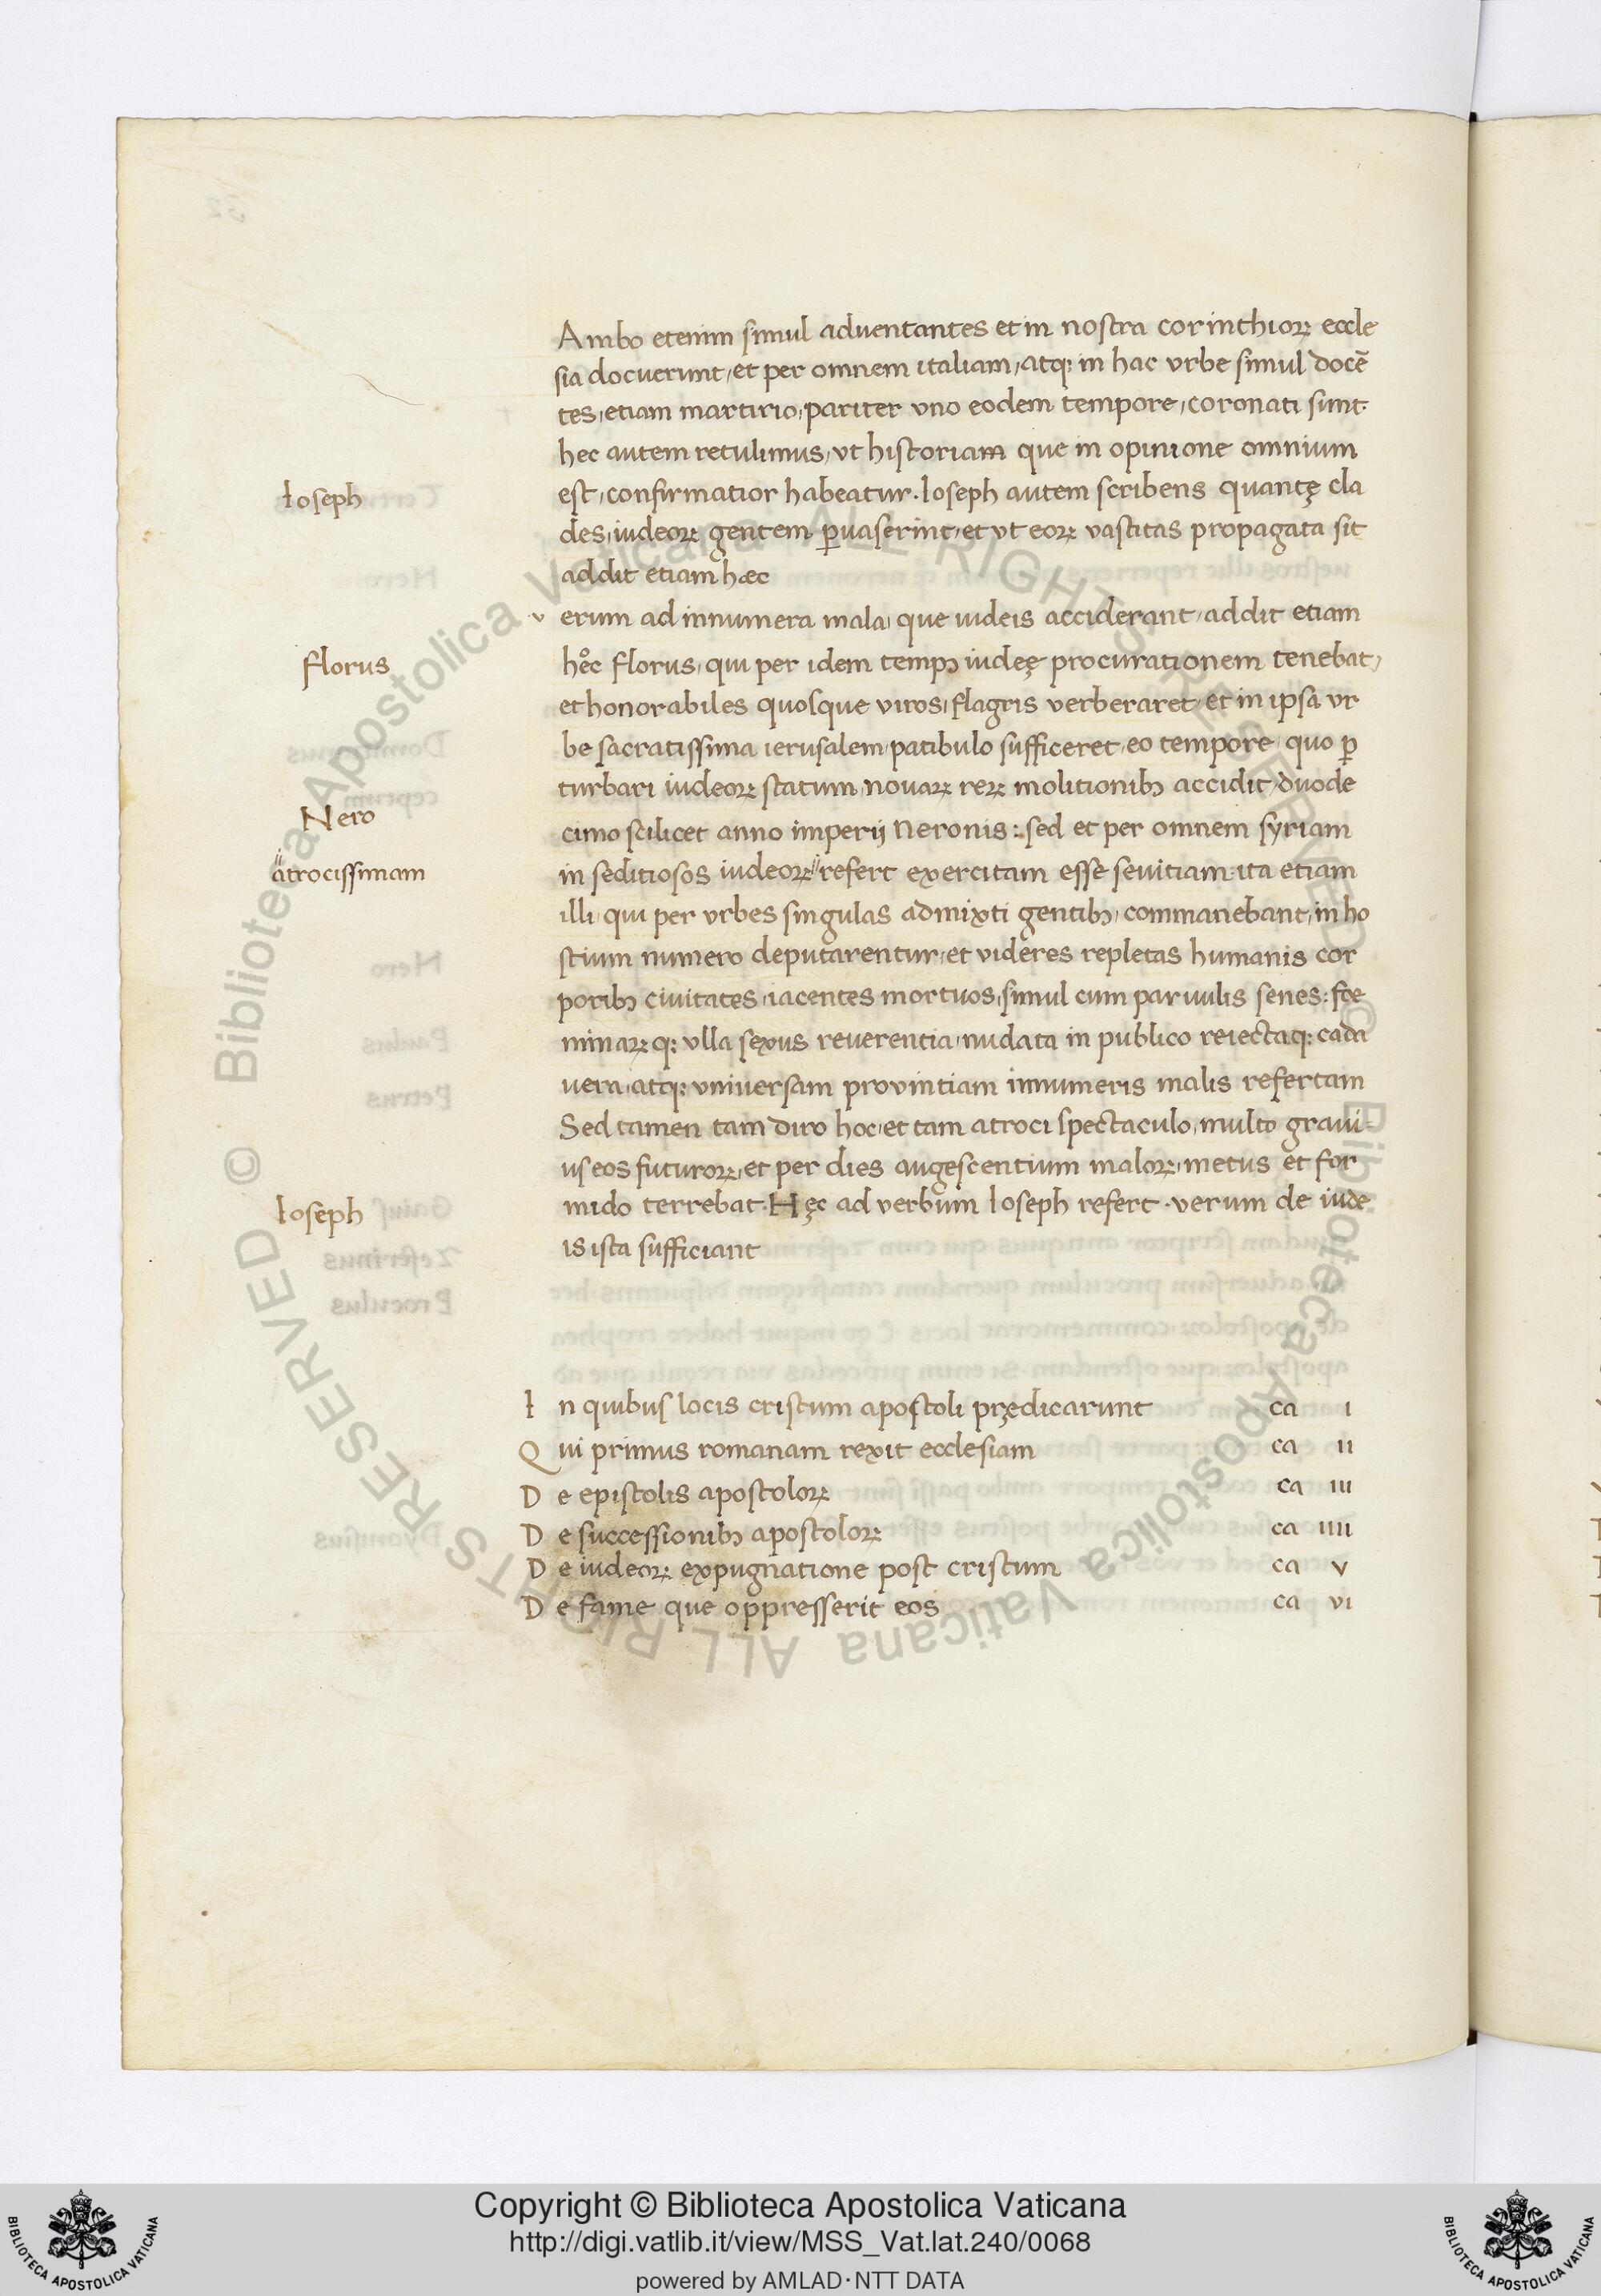 Ambo etenim simul adventantes et in nostra corinthioꝝ eccle
sia docuerunt, et per omnem italiam, atqꝫ in hac vrbe simul docē
tes, etiam martirio, pariter vno eodem tempore, coronati sunt.
hec autem retulimus, vt historiam que in opinione omnium
Ioseph
est, confirmatior habeatur. Ioseph autem scribens quantę cla
des, iudeoꝝ gentem ꝑuaserint, et vt eoꝝ vastitas propagata sit
addit etiam hæc
v erum ad innumera mala, que iudeis acciderant, addit etiam
florus
hec florus, qui per idem tempꝰ iudeę procurationem tenebat,
et honorabiles quosque viros, flagris verberaret, et in ipsa vr
be sacratissima ierusalem, patibulo sufficeret, eo tempore, quo ꝑ
turbari iudeoꝝ statum, nouaꝝ reꝝ molitionibꝰ accidit, duode
Nero
cimo scilicet anno imperij Neronis: sed et per omnem syriam
atrocissimam
in seditiosos iudeoꝝ refert exercitam esse seuitiam: ita etiam
illi, qui per vrbes singulas admixti gentibꝰ, commanebant, in ho
stium numero deputarentur, et videres repletas humanis cor
poribꝰ ciuitates, iacentes mortuos, simul cum paruulis senes: foe
minaꝝ qꝫ vlla sexus reuerentia, nudata in publico reiectaqꝫ cada
uera, atqꝫ vniuersam provintiam innumeris malis refertam
Sed tamen tam diro hoc, et tam atroci spectaculo, multo graui-
us eos futuroꝝ, et per dies augescentium maloꝝ, metus et for
Ioseph
mido terrebat. Hęc ad verbum Ioseph refert. verum de iude
is ista sufficiant
I n quibus locis cristum apostoli prędicarunt ca i
Q ui primus romanam rexit ecclesiam ca ii
D e epistolis apostoloꝝ ca iii
D e successionibꝰ apostoloꝝ ca iiii
D e iudeoꝝ expugnatione post cristum ca v
D e fame que oppresserit eos ca vi
© Biblioteca Apostolica Vaticana ALL RIGHTS RESERVED © Biblioteca Apostolica Vaticana ALL RIGHTS RESERVED
Copyright © Biblioteca Apostolica Vaticana
http://digi.vatlib.it/view/MSS_Vat.lat.240/0068
powered by AMLAD·NTT DATA
BIBLIOTECA APOSTOLICA VATICANA
BIBLIOTECA APOSTOLICA VATICANA